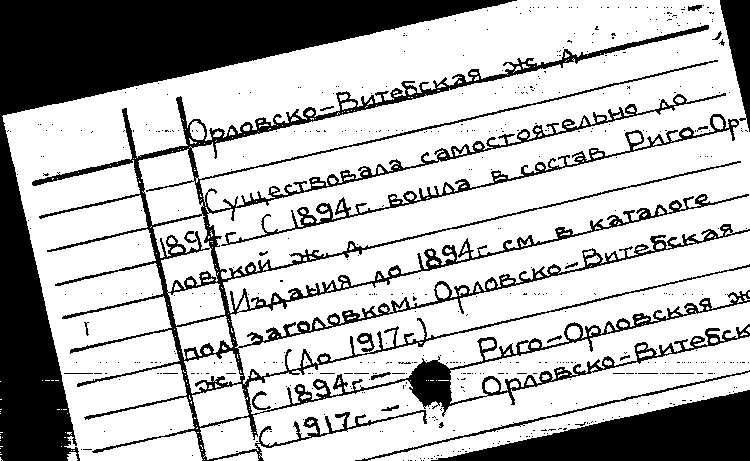 Орловско-Витебская ж. д.
Существовала самостоятельно до
1894г. С 1894г. вошла в состав Риго-Ор-
ловской ж. д.
Издания до 1894г. см. в каталоге
под заголовком: Орловско-Витебская
ж. д. (До 1917г.).
С 1894г. — Риго-Орловская ж
С 1917г. — Орловско-Витебск